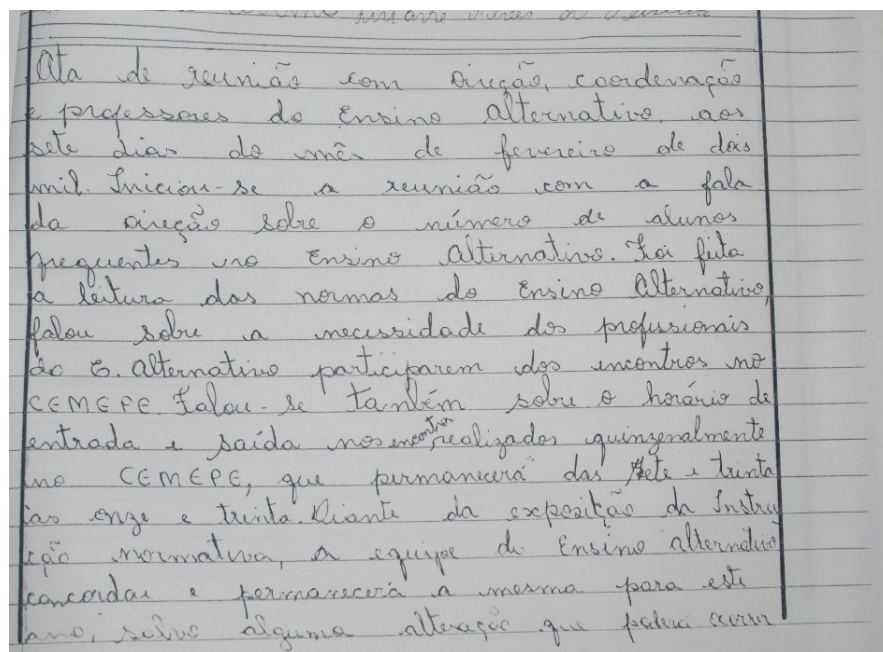 Ata de reunião com direção, coordenação
e professores do Ensino Alternativo, aos
sete dias do mês de fevereiro de dois
mil. Iniciou-se a reunião com a fala
da direção sobre o número de alunos
frequentes no Ensino Alternativo. Foi feita
a leitura das normas do Ensino Alternativo,
falou sobre a necessidade dos profissionais
do E. Alternativo participarem dos encontros no
CEMEPE. Falou-se também sobre o horário de
entrada e saída nos encontros realizados quinzenalmente
no CEMEPE, que permanecerá das sete e trinta
às onze e trinta. Diante da exposição da Instru
ção normativa, a equipe do Ensino Alternativo
concordou e permanecerá a mesma para este
ano, salvo alguma alteração que poderá ocorrer